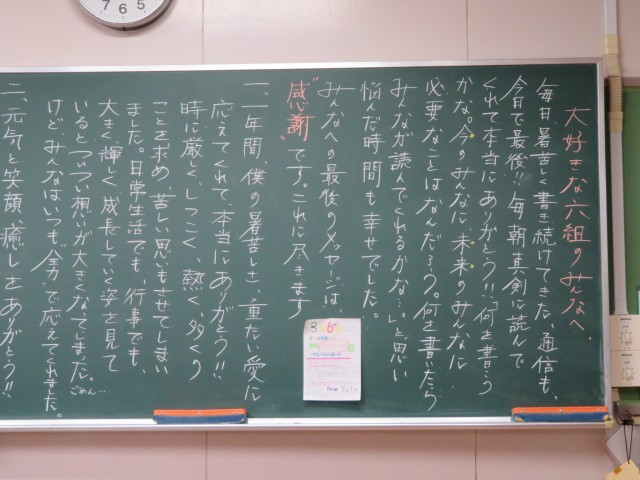 大好きな六組のみんなへ
毎日、暑苦しく書き続けてきた、通信も、
今日で最後!!毎朝真剣に読んで
くれて本当にありがとう!!「何を書こう
かな。今のみんなに、未来のみんなに
必要なことはなんだろう。何を書いたら
みんなが読んでくれるかな…。」と思い
悩んだ時間も幸せでした。
みんなへの最後のメッセージは、
"感謝"です。これに尽きます
一、一年間、僕の暑苦しさ、重たい愛に
応えてくれて、本当にありがとう!!
時に厳しく、しつこく、熱く、多くの
ことを求め、苦しい思いもさせてしまい
ました。日常生活でも、行事でも、
大きく輝しく成長していく姿を見て
いるとついつい想いが大きくなってしまった。ごめん…
けど、みんなはいつも"全力"で応えてくれました。
二、元気と笑顔、癒しをありがとう!!
3 6
7 6 5